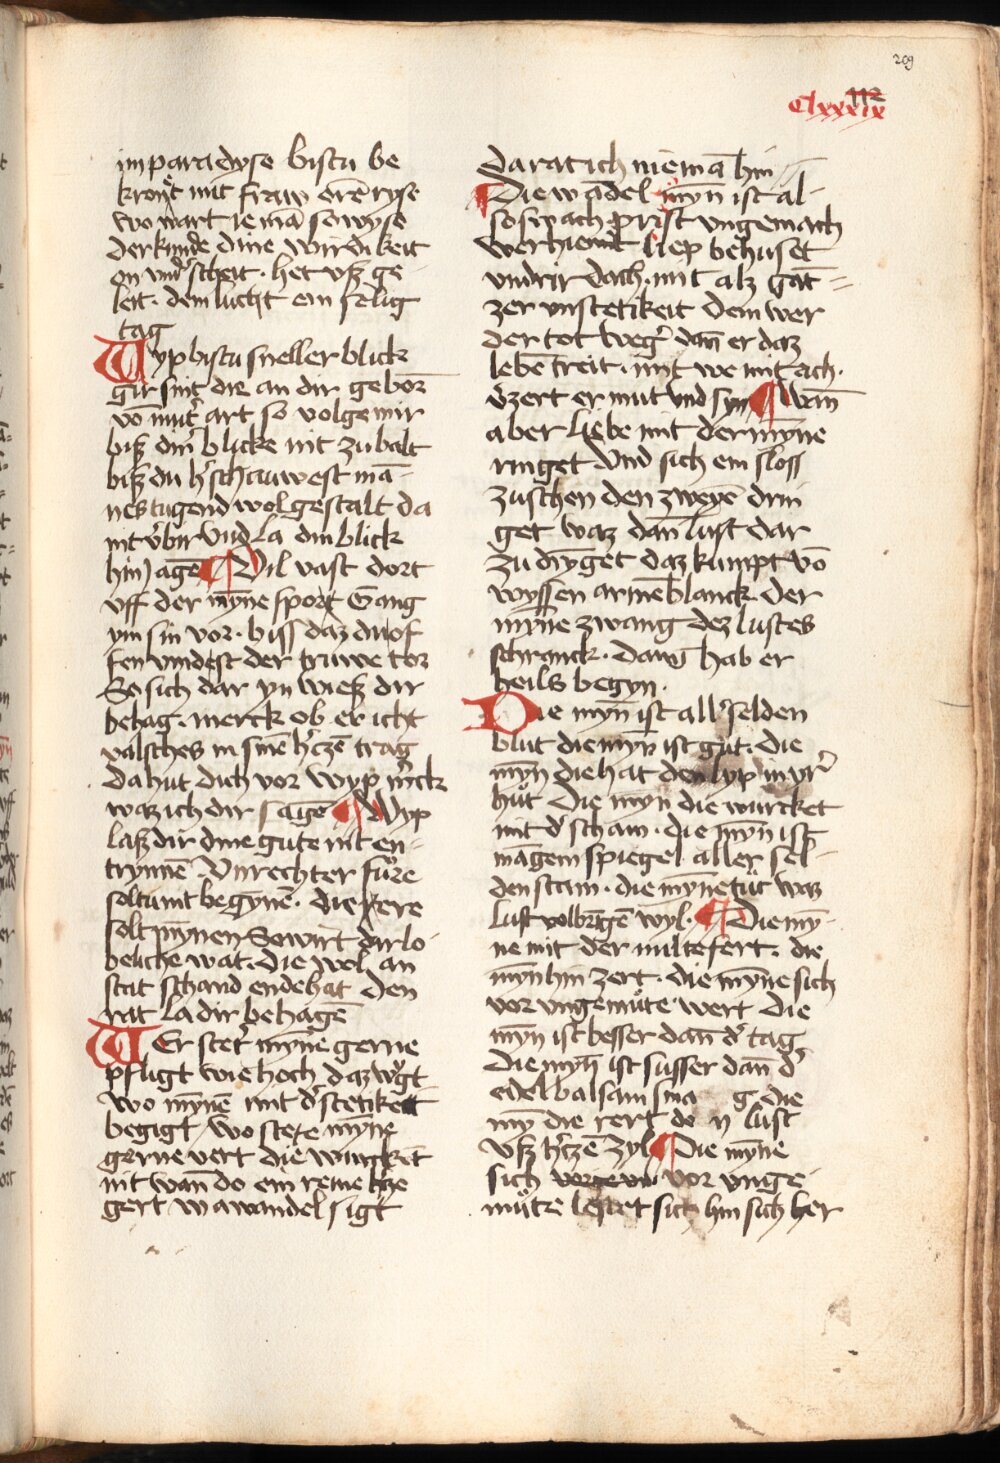 209
112
Clxxxix
im paradyse bistu be
kronet mit fraw erē ryse
wo wart ie mā so wyse
der kunde dine wirdikeit
on vnd'scheit · het vsz ge-
leit · dem lucht ein selig
tag
Wyp bistu sneller blick
gir sint die an dir geborn̄
vō mut' art so volge mir
bisz din' blicke nit zu balt
bisz du h'schauwest mā-
nes tugend wol gestalt da
nit v'bir vnd la din blick
hin iagē ¶ Vil vast dort
vff der myn̄e sport Gang
ym sin vor · biss daz du of
fen vindest der truwe tor
So sich dar yn wiesz dir
behag · merck ob er icht
valsches in sinē h'czē trag
Da hut dich vor wyp m'ck
waz ich dir sage ¶ Wyp
lasz dir dine gute nit en-
trynnē · Vnrechter fure
soltu nit begynē · die ere
solt myn̄en So wirt dir lo-
beliche wat · die wol an
stat schand ende hat den
rat La dir behagē
Wer stet' myn̄e gerne
pfligt wie hoch daz wigt
wo myn̄e mit d' stetikeit
begigt / wo stete myn̄e
gerne vert die wurcket
nit wan̄ do ein reine h'cze
gert wa wandel sigt
da rat ich niemā hin
¶ Die wādel myn̄ ist al-
so swach prist vngemach
wer hie mit liep behuset
vndir dach · mit alz gan̄-
zer vnstetikeit dem wer
der tot weg' dan̄ er daz
lebē treit · mit we mit ach ·
v'zert er mut vnd syn ¶ Wan̄
aber Liebe mit der myn̄e
ringet Vnd sich ein sloss
zuschen den zweyē drin
get waz dan̄ lust dar
zu dringet daz kumpt vō
wyssen armē blanck · der
myn̄e zwang dez lustes
schranck · dan̄ hab er
heils begyn ·
Die myn̄ ist all' selden
blut die myn̄ ist gut · die
myn̄ die hat den lyp in yr'
hut Die myn die wurcket
mit d' scham · die myn̄ ist
māgem spiegel aller sel-
den stam · die myn̄e tut waz
lust volbrīgē wyl · ¶ Die my-
ne mit der milte fert · die
myn̄ hin zert · die myn̄e sich
vor vngemute wert die
myn̄ ist besser dan̄ d' tag
Die myn̄ ist susser dan̄ d'
edel balsam sma g · die
myn̄ die rert de n lust
vsz h'tzē zyl ¶ Die myn̄e
sich vor vnge
mutze leitet sich hin sich her